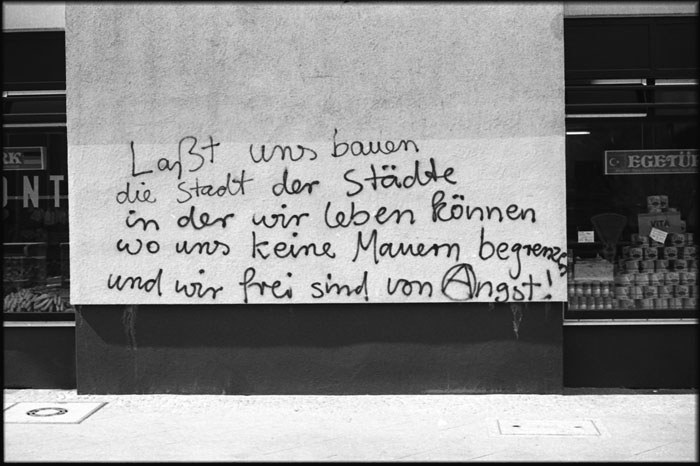 Laßt uns bauen
die Stadt der Städte
in der wir leben können
wo uns keine Mauern begrenzen
und wir frei sind von Angst!
RK
ONT
EGETÜ